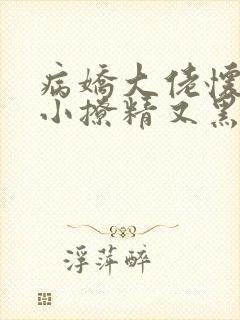 病娇大佬怀
小撩精又黑
浮萍醉